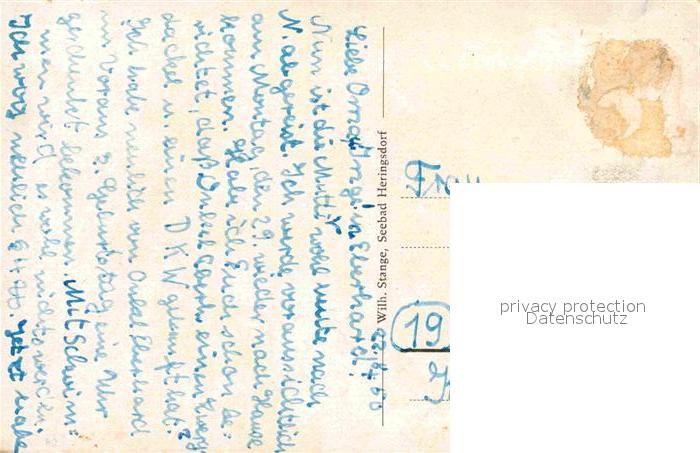 Liebe Oma, Inge u. Eberhard!
Nun ist die Mutti wohl heute nach
N. abgereist. Ich werde voraussichtlich
am Montag, den 29. wieder nach Hause
kommen. Habe ich Euch schon be-
richtet, daß Onkel einen Zwerg-
dackel u. einen DKW gekauft hat?
Ich habe neulich von Onkel Eberhard
im Voraus z. Geburtstag eine Uhr
geschenkt bekommen. Mit Schwim-
men wird es wohl nichts werden.
Ich wog neulich 94 Pf. Jetzt habe
Wilh. Stange, Seebad Heringsdorf
Frau
19
privacy protection
Datenschutz